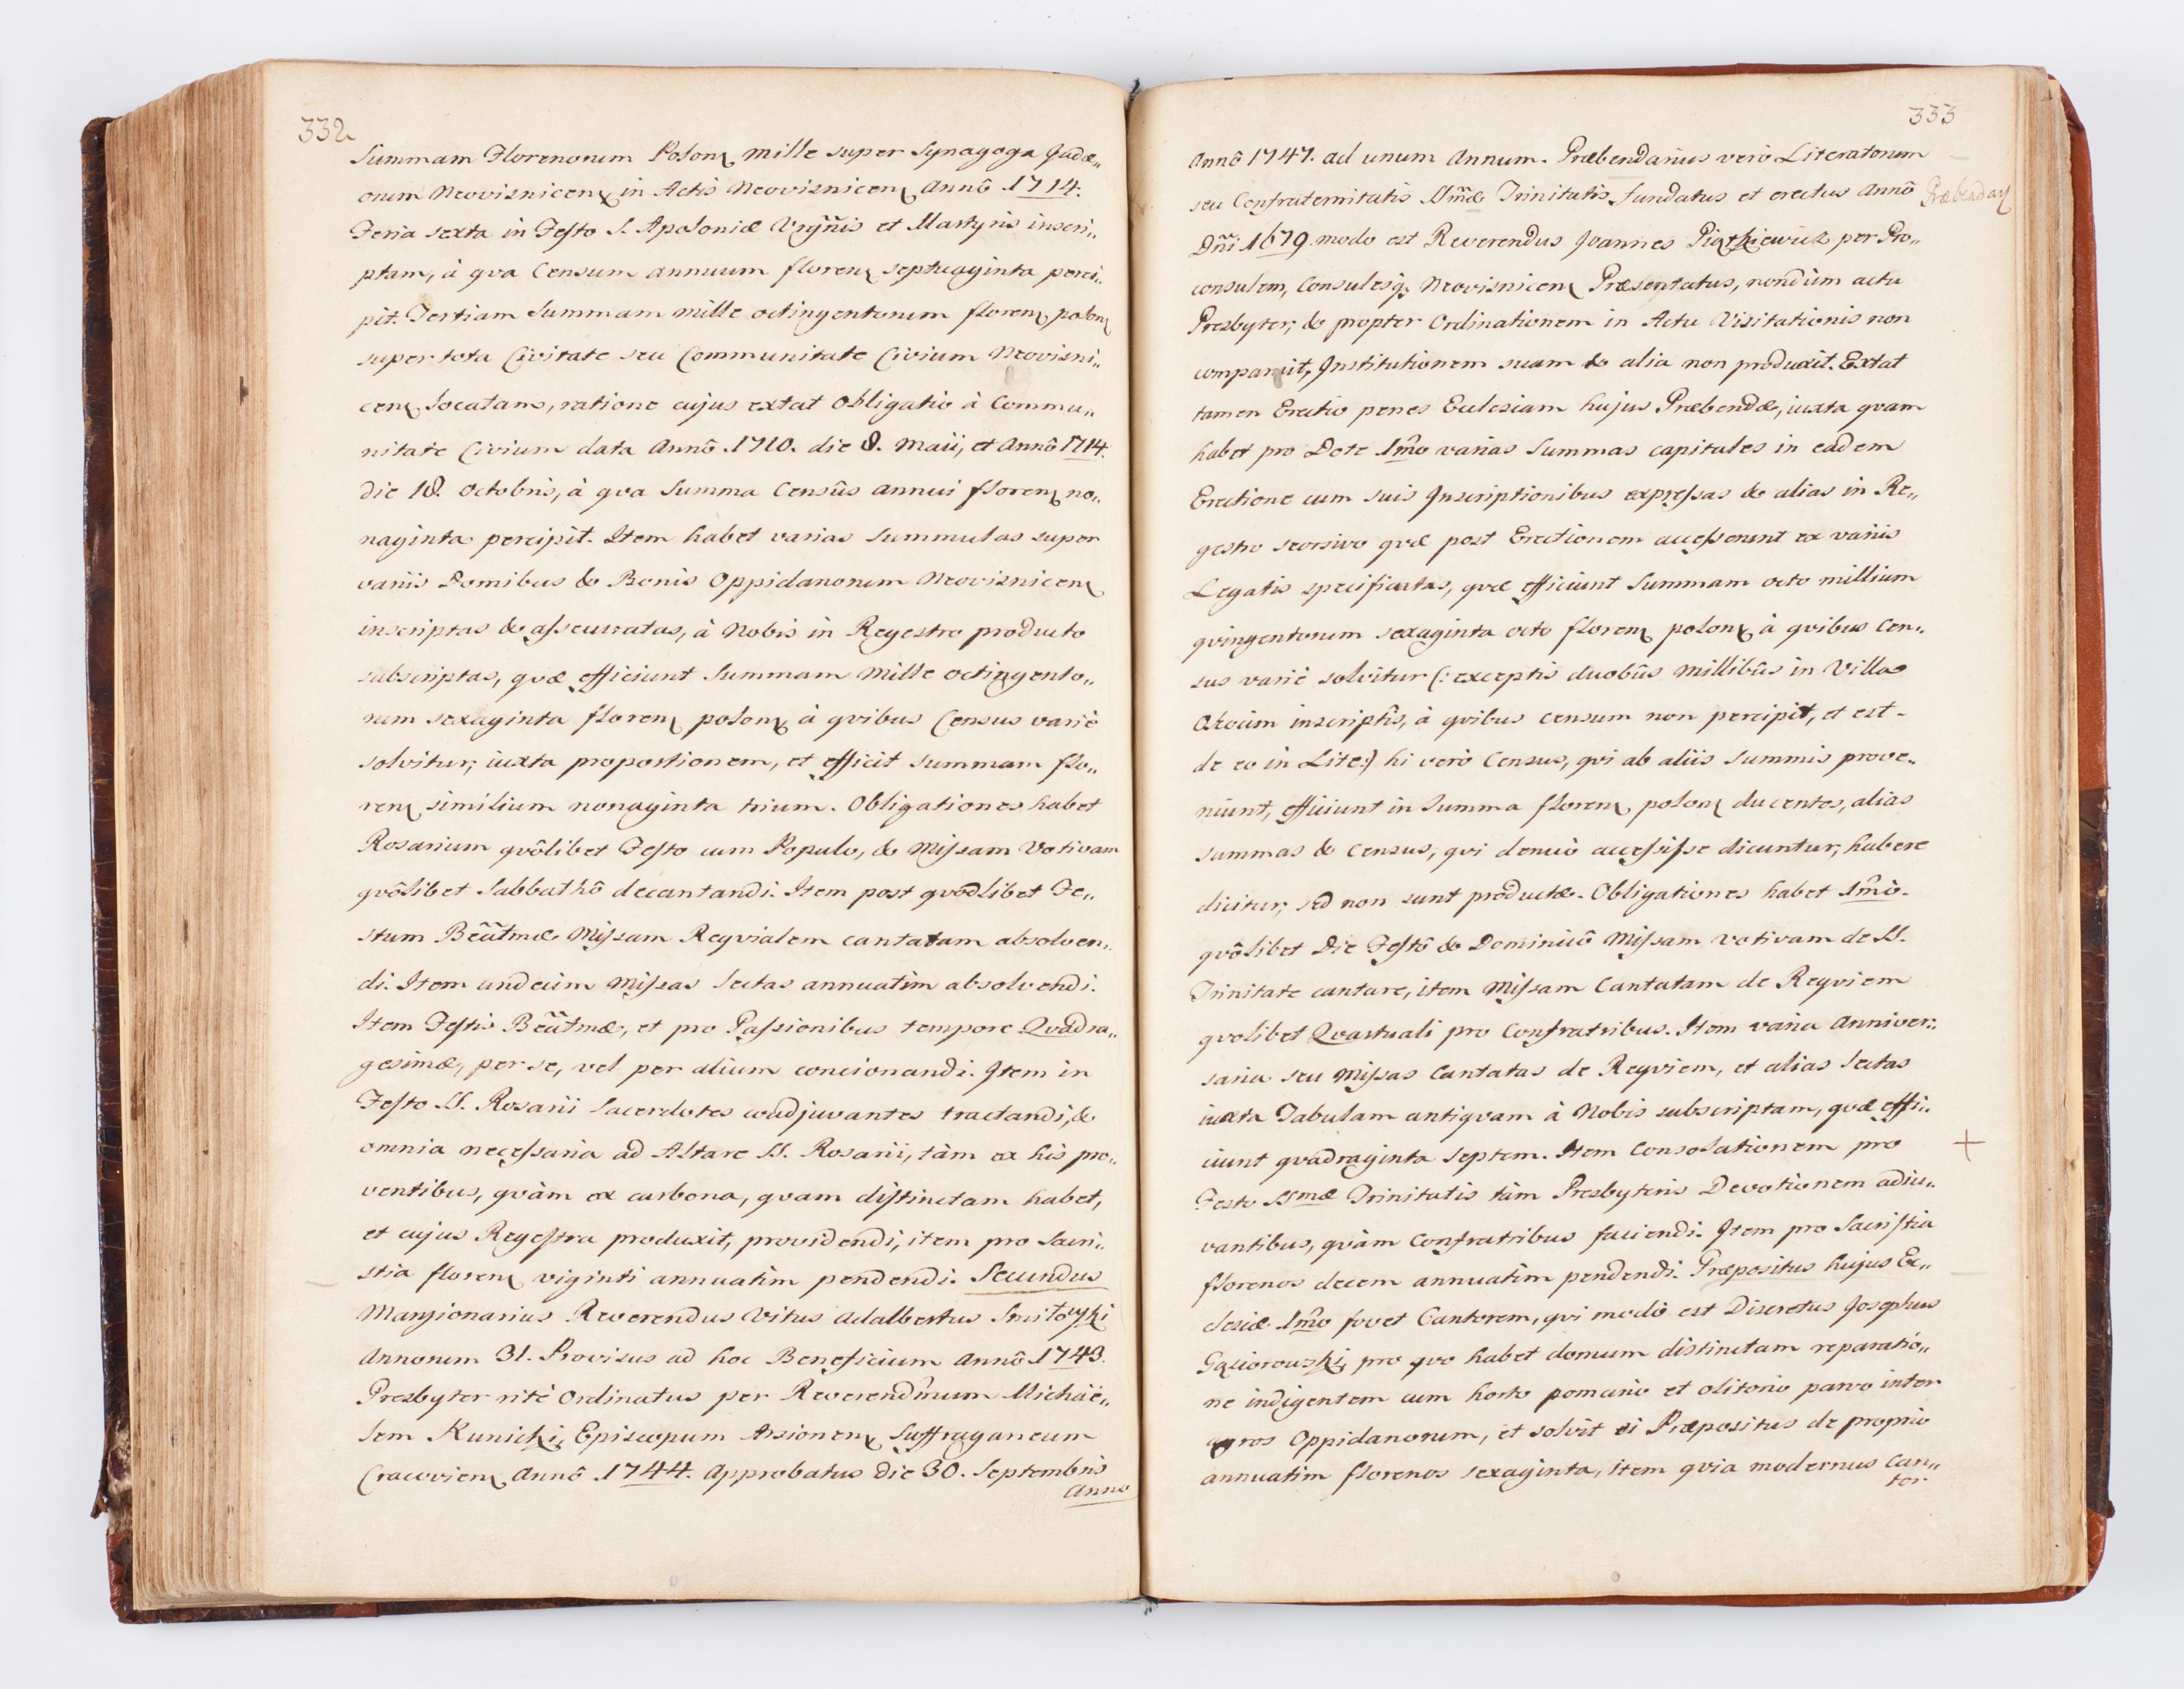 332
Summam Florenorum Polon mille super Synagoga Judæ„
orum Neovisnicen in Actis Neovisnicen Annô 1714.
Feria sexta in Festo S. Apoloniæ Vrgñis et Martyris inscri„
ptam, à qva Censum annuum floren septuaginta perci„
pit. Tertiam Summam mille octingentorum floren polon
super tota Civitate seu Communitate Civium Neovisni„
cen locatam, ratione cujus extat Obligatio à Commu„
nitate Civium data Annô 1710. die 8. Maii, et Annô 1714.
die 18. Octobris, à qva Summa Censûs annui floren no„
naginta percipit. Item habet varias Summulas super
variis Domibus & Bonis Oppidanorum Neovisnicen
inscriptas & assecuratas, à Nobis in Regestro producto
subscriptas, qvæ efficiunt Summam Mille octingento„
rum sexaginta floren polon à qvibus Census variè
solvitur, iuxta proportionem, et efficit summam flo„
ren similium nonaginta trium. Obligationes habet
Rosarium qvôlibet Festo cum Populo, & Missam Votivam
qvôlibet Sabbathô decantandi. Item post qvodlibet Fe„
stum Beãtmæ Missam Reqvialem cantatam absolven„
di. Item undecim Missas lectas annuatim absolvendi.
Item Festis Beãtmæ, et pro Passionibus tempore Qvadra„
gesimæ, per se, vel per alium concionandi. Item in
Festo SS. Rosarii Sacerdotes coadjuvantes tractandi, &
omnia necessaria ad Altare SS. Rosarii, tàm ex his pro„
ventibus, qvàm ex carbona, qvam distinctam habet,
et cujus Regestra produxit, providendi, item pro Sacri„
stia floren viginti annuatim pendendi. Secundus
Mansionarius Reverendus Vitus Adalbertus
Annorum 31. Provisus ad hoc Beneficium Annô 1743.
Presbyter ritè Ordinatus per Reverendm̃um Michaë„
lem Kunicki, Episcopum Arsionen Suffraganeum
Cracovien Annô 1744. Approbatus die 30. Septembris
Anno
333
Annô 1747. ad unum Annum. Præbendarius verò Literatorum
seu Confraternitatis SSm̃æ Trinitatis, fundatus et erectus Annô
Præbendar
Dñi 1679. modo est Reverendus Joannes Piątkiewicz per Pro„
consulem, Consulesq; Neovisnicen Præsentatus, nondùm actu
Presbyter, & propter Ordinationem in Actu Visitationis non
comparuit, Institutionem suam & alia non produxit. Extat
tamen Erectio penes Ecclesiam hujus Præbendæ, iuxta qvam
habet pro Dote 1m̃o varias Summas capitales in eadem
Erectione cum suis Inscriptionibus expressas & alias in Re„
gestro seorsivo qvæ post Erectionem accesserunt ex variis
Legatis specificatas, qvæ efficiunt Summam octo millium
qvingentorum sexaginta octo floren polon à qvibus Cen„
sus variè solvitur (: exceptis duobûs millibûs in Villa
inscriptis, à qvibus censum non percipit, et est
de eo in Lite:) hi verò Census, qvi ab aliis Summis prove„
niunt, efficiunt in Summa floren polon ducentos, alias
summas & census, qvi denuò accessisse dicuntur, habere
dicitur, sed non sunt productæ. Obligationes habet 1m̃ò.
qvôlibet Die Festô & Dominicô Missam votivam de SS.
Trinitate cantare, item Missam Cantatam de Reqviem
qvolibet Qvartuali pro Confratribus. Item varia Anniver„
saria seu Missas Cantatas de Reqviem, et alias lectas
iuxta Tabulam antiqvam à Nobis subscriptam, qvæ effi„
ciunt qvadraginta septem. Item Consolationem pro +
Festo SSmæ Trinitatis tàm Presbyteris Devotionem adiu„
vantibus, qvàm Confratribus faciendi. Item pro Sacristia
florenos decem annuatim pendendi. Præpositus hujus Ec„
clesiæ 1m̃o fovet Cantorem, qvi modò est Discretus Josephus
Gąsiorowski, pro qvo habet domum distinctam reparatio„
ne indigentem cum horto pomario et olitorio parvo inter
agros Oppidanorum, et solvit ei Præpositus de proprio
annuatim florenos sexaginta, item qvia modernus Can„
tor